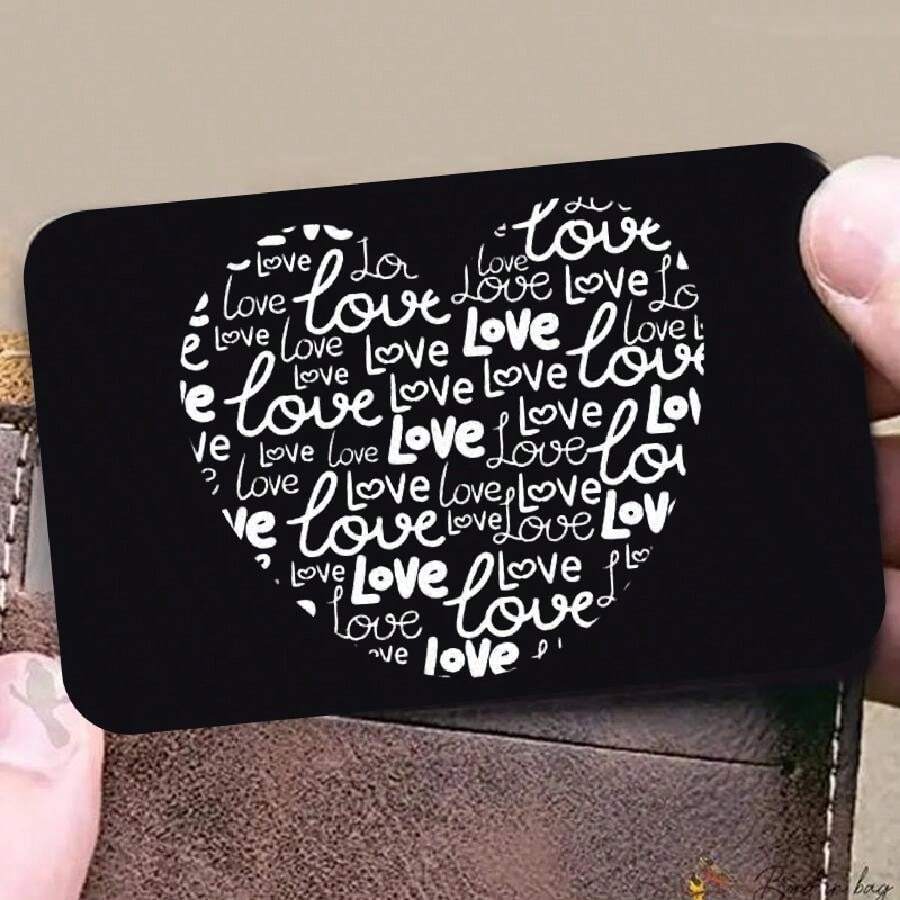 love
Love Lor love
love love Love Love Lo
Love love Love Love love
Love Love Love love
love Love Love Lo
ve Love love Love Love lo
love Love love Love
ve love Love Love Lov
Love Love Love Lo
Love love
ove love